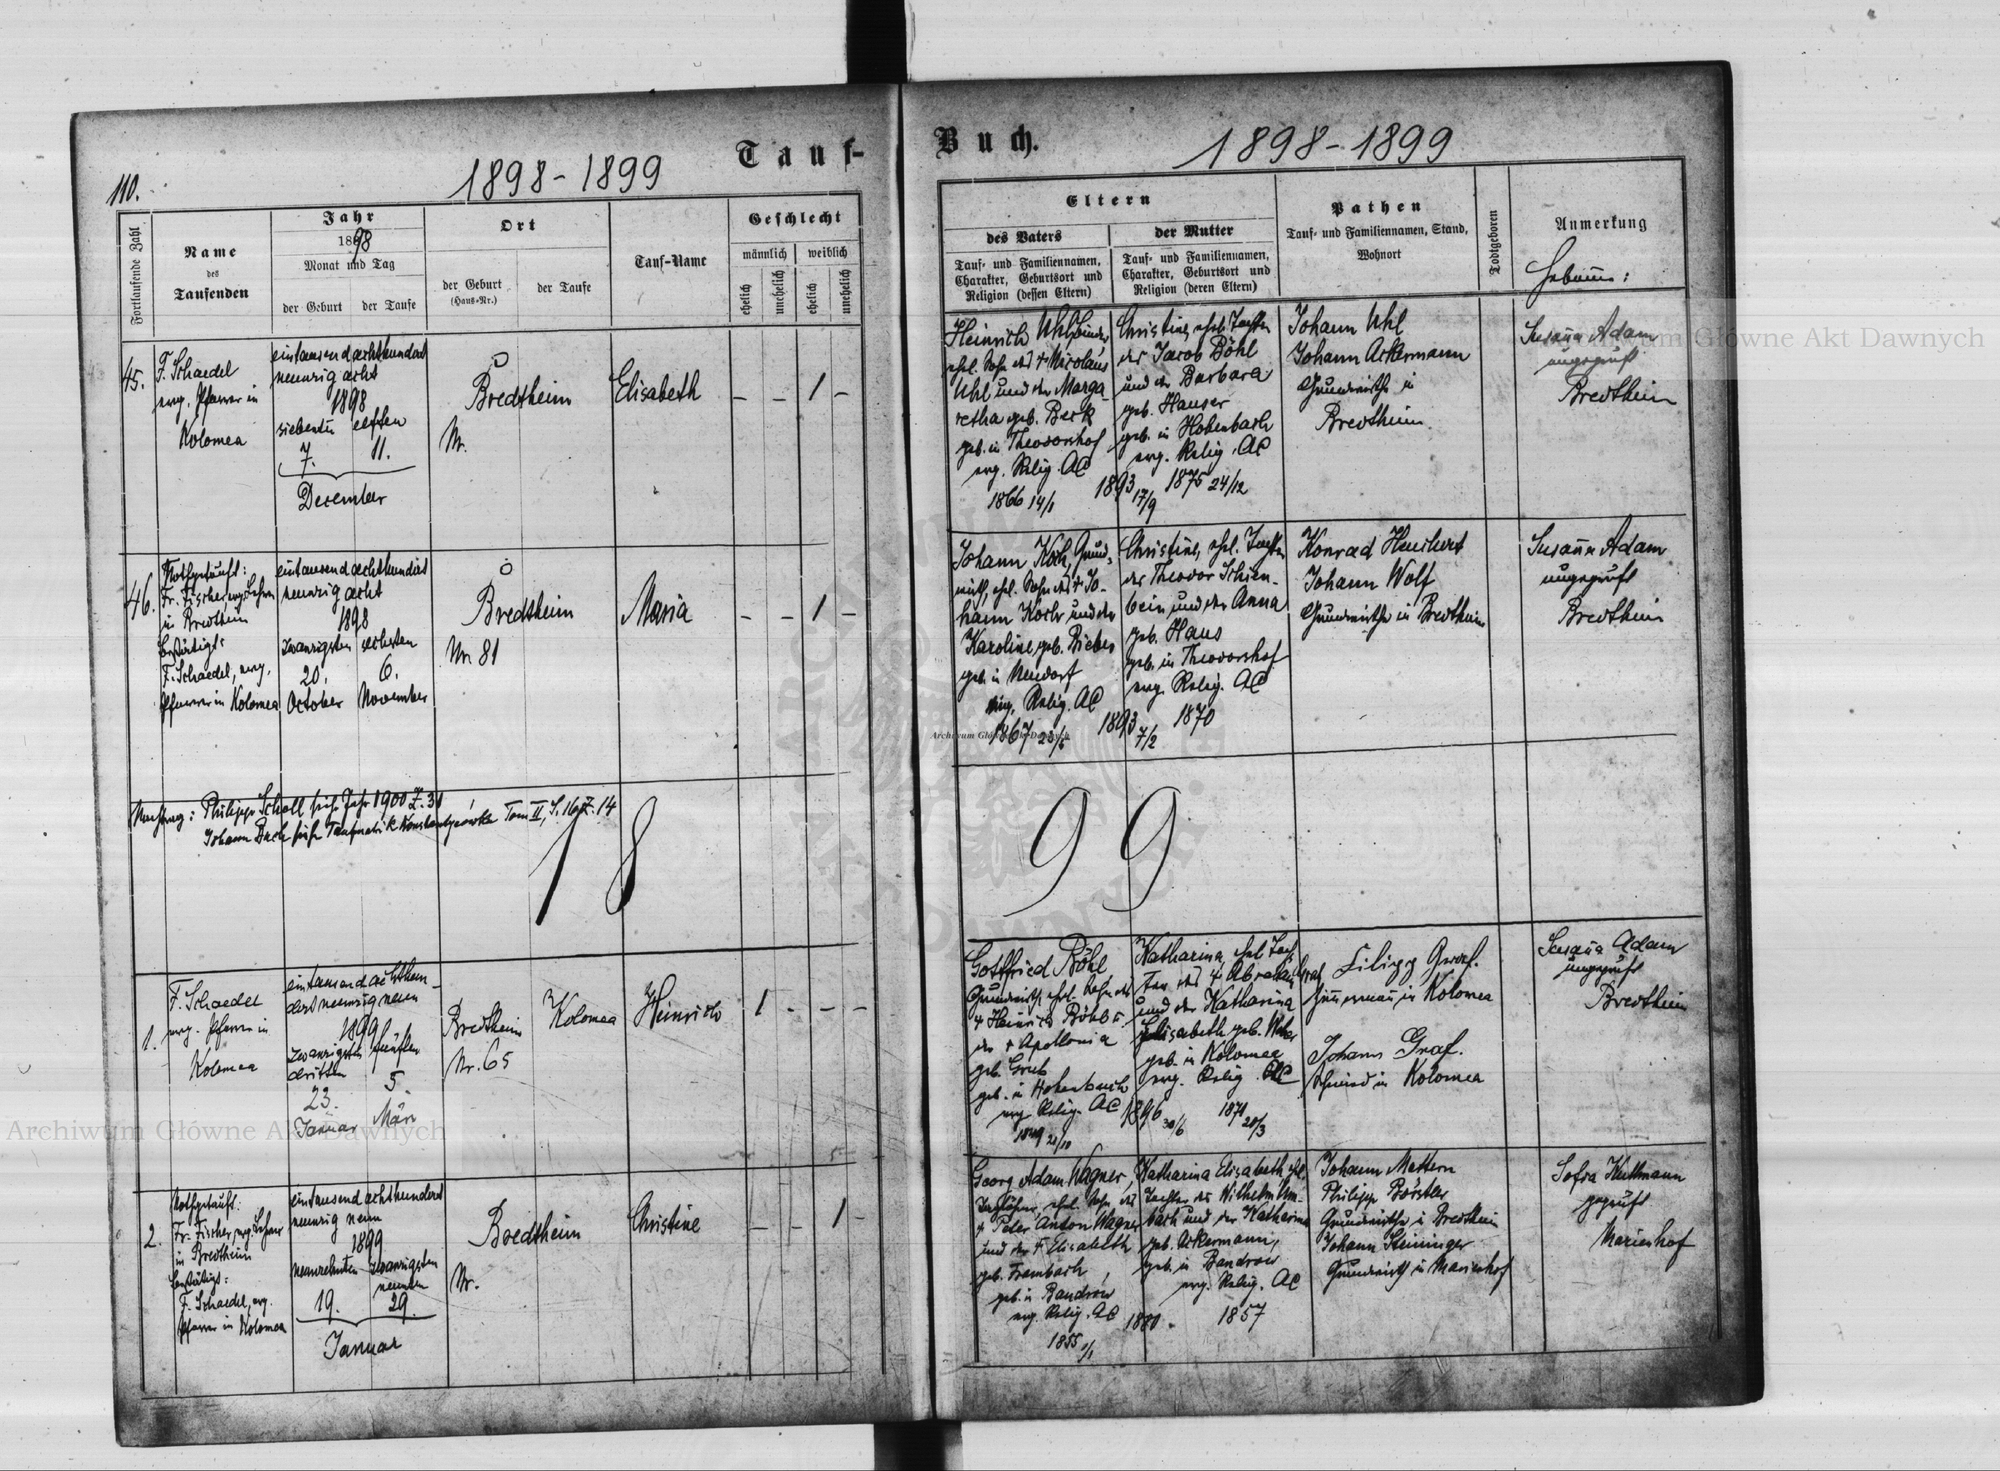 110.
1898-1899
Tauf-
Fortlaufende Zahl
Name
des
Taufenden
Jahr
1898
Monat und Tag
der Geburt
der Taufe
Ort
der Geburt
(Haus-Nr.)
der Taufe
Tauf-Name
Geschlecht
männlich
weiblich
ehelich
unehelich
ehelich
unehelich
45.
F. Schaedel
evg. Pfarrer in
Kolomea
eintausendachthundert
neunzig acht
1898
siebenten
elften
7.
11.
December
Bredtheim
Nr.
Elisabeth
- - 1 -
46.
Nothgetauft:
Fr. Fischer evg. Lehrer
in Bredtheim
bestätigt:
F. Schaedel, evg.
Pfarrer in Kolomea
eintausendachthundert
neunzig acht
1898
zwanzigsten
sechsten
20.
6.
October
November
Bredtheim
Nr. 81
Maria
- - 1 -
Nachtrag: Philipp Scholl siehe Jahr 1900 Z. 31
Johann siehe Taufmatrik Konstantynówka Tom II, S. 16, Z. 14
18
1.
F. Schaedel
evg. Pfarrer in
Kolomea
eintausendachthun-
dertneunzig neun
1899
zwanzigsten
fünften
dritten
23.
5.
Januar
März
Bredtheim
Nr. 65
Kolomea
Heinrich
1 - - -
2.
Nothgetauft:
Fr. Fischer, evg. Lehrer
in Bredtheim
bestätigt:
F. Schaedel, evg.
Pfarrer in Kolomea
eintausendachthundert
neunzig neun
1899
neunzehnten
zwanzigsten
neunten
19.
29.
Januar
Bredtheim
Nr.
Christine
- - 1 -
Buch.
1898-1899
Eltern
des Vaters
der Mutter
Tauf- und Familiennamen,
Charakter, Geburtsort und
Religion (dessen Eltern)
Tauf- und Familiennamen,
Charakter, Geburtsort und
Religion (deren Eltern)
Pathen
Tauf- und Familiennamen, Stand,
Wohnort
Todtgeboren
Anmerkung
Hebamme:
Heinrich Uhl,
ehel. Sohn des † Nicolaus
Uhl und der Marga-
retha geb. Beck
geb. in Theodorshof
evg. Relig. AC
1866 14/1
1893 17/9
Christine, ehel. Tochter
der Jacob Böhl
und der Barbara
geb. Hauser
geb. in Hohenbach
evg. Relig. AC
1875 24/12
Johann Uhl
Johann Ackermann
Grundwirthe in
Bredtheim
Susanna Adam
ungeprüft
Bredtheim
Johann Koch, Grund-
wirth, ehel. Sohn des † Jo-
hann Koch und der
Karoline, geb. Bieber
geb. in Neudorf
evg. Relig. AC
1867
1893 7/2
Christine, ehel. Tochter
des Theodor Schien-
bein und der Anna
geb. Haus
geb. in Theodorshof
evg. Relig. AC
1870
Konrad Heuchert
Johann Wolf
Grundwirthe in Bredtheim
Susanna Adam
ungeprüft
Bredtheim
99
Gottfried Böhl
Grundwirth ehel. Sohn des
† Heinrich Böhl u.
der † Apollonia
geb. Grub
geb. in Hohenbach
evg. Relig. AC
1896 30/6
Katharina, ehel. Toch-
ter des † Abraham Graf
und der Katharina
Elisabeth geb. Weber
geb. in Kolomea
evg. Relig. AC
1871 28/3
Filipp Graf.
Zimmermann in Kolomea
Johann Graf.
Schmied in Kolomea
Susanna Adam
ungeprüft
Bredtheim
Georg Adam Wagner,
Taglöhner, ehel. Sohn des
† Peter Anton Wagner
und der † Elisabeth
geb. Frambach,
geb. in Bandrow
evg. Relig. AC
1855
1880.
Katharina Elisabeth ehel.
Tochter des Wilhelm Um-
bach und der Katharina
geb. Ackermann,
geb. in Bandrow
evg. Relig. AC
1857
Johann Mattern
Philipp Börstler
Grundwirthe in Bredtheim
Johann Steininger
Grundwirth in Marienhof
Sofia Kuttmann
geprüft
Marienhof
Archiwum Główne Akt Dawnych
Archiwum Główne Akt Dawnych
Archiwum Główne Akt Dawnych